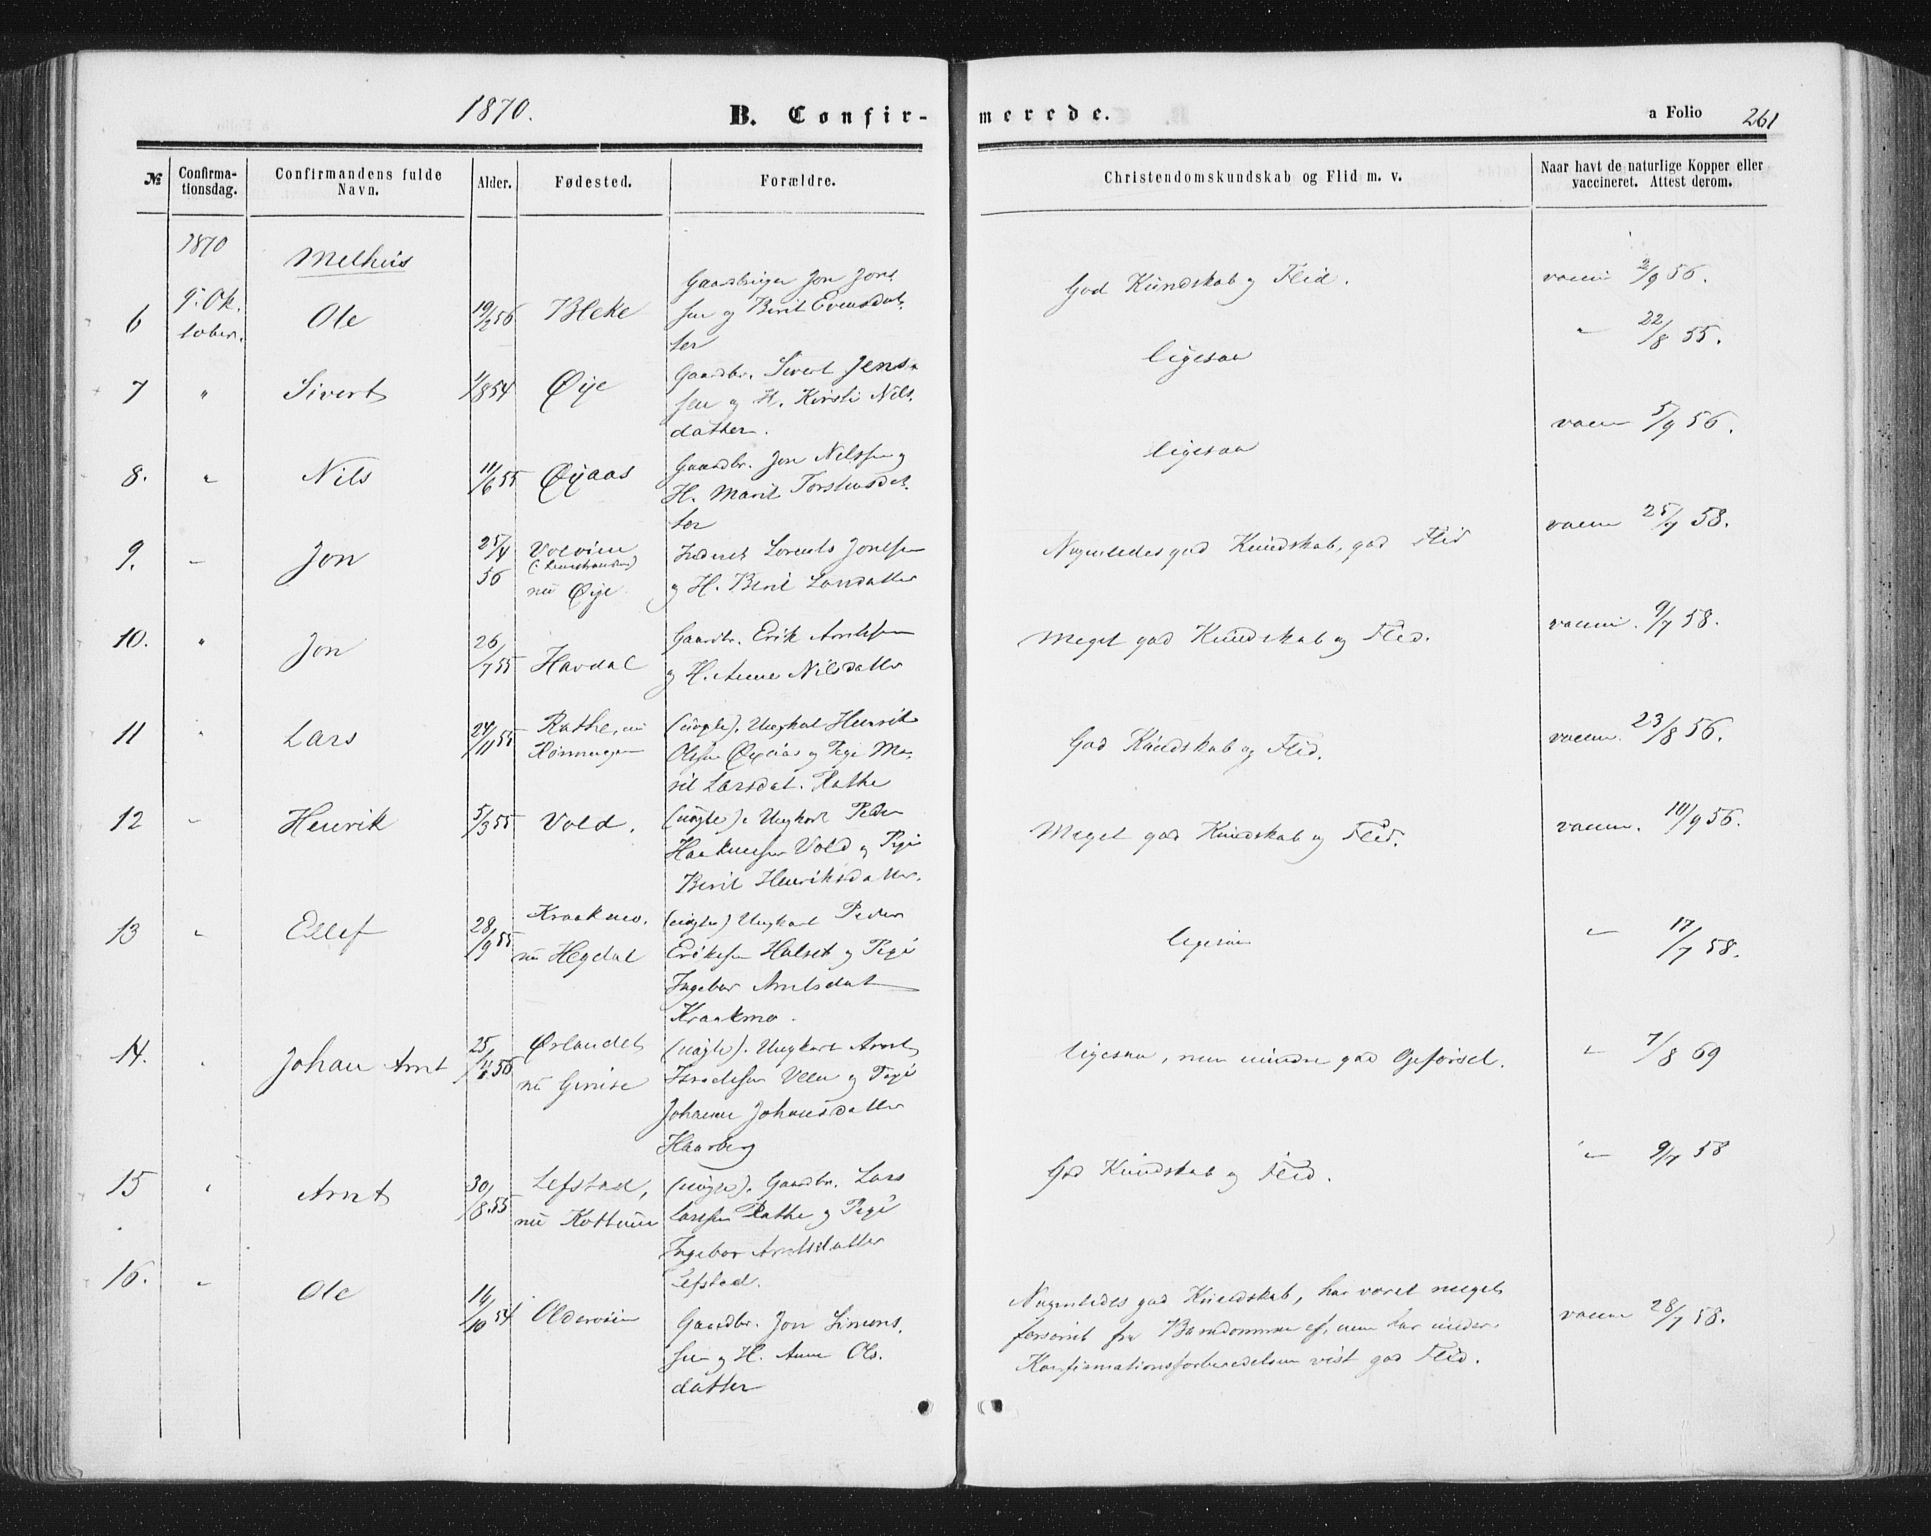 1870.
B. Confir-
merede.
a Folio 261
№
Confirma-
tionsdag.
Confirmandens fulde
Navn.
Alder.
Fødested.
Forældre.
Christendomskundskab og Flid m. v.
Naar havt de naturlige Kopper eller
vaccineret. Attest derom.
1870
Melhus
6
9. Ok-
tober.
Ole
19/2 56
Bleke
Jon Jons-
sen og Berit Evensdat-
ter
God Kundskab og Flid.
2/9 56.
7
"
Sivert
1/8 54
Øye
Gaardbr. Sivert Jens-
sen og H. Kirsti Nils-
datter.
ligesaa
" 22/8 55.
8.
"
Nils
11/6 55
Øyaas
Gaardbr. Jon Nilssen og
H. Marit Torstensdat-
ter
ligesaa
5/9 56.
9.
"
Jon
25/4
56
nu Øye
Lorents Jonssen
og H. Berit Larsdatter
Nogenledes god Kundskab, god Flid
25/9 58.
10.
"
Jon
26/7 55
Havdal
Gaardbr. Erik Arntssen
og H. Anne Nilsdatter
Meget god Kundskab og Flid.
9/7 58.
11
"
Lars
24/11 55
Rathe, nu
(uægte). Ungkarl Henrik
Olssen Øyaas og Pige Ma-
rit Larsdat. Rathe
God Kundskab og Flid.
23/8 56.
12
"
Henrik
5/3 55
Vold.
(uægte). Ungkarl Peder
Haakensen Vold og Pige
Berit Henriksdatter.
Meget god Kundskab og Flid.
10/9 56.
13
"
Ellef
28/9 55
Kraakmo.
nu Hegdal
(uægte) Ungkarl Peder
Eriksen Halset og Pige
Ingebor Arntsdat
Kraakmo.
ligesaa
" 17/7 58.
14.
"
Johan Arnt
25/4 56
Ørlandet
nu
(uægte). Ungkarl Arnt
og Pige
Johanne Johansdatter
Haarberg
ligesaa, men mindre god Opførsel.
" 7/8 69
15
"
Arnt
30/8 55
Lefstad,
nu Kottum
(uægte). Gaardbr. Lars
Larssen Rathe og Pige
Ingebor Arntsdatter
Lefstad.
God Kundskab og Flid.
" 9/7 58
16.
"
Ole
14/10 54
Olderøien
Gaardbr. Jon Simons-
sen og H. Anne Ols-
datter
Nogenledes god Kundskab, har været meget
forsømt fra Barndommen af, men har under
Konfirmationsforberedelsen vist god Flid.
28/7 58.